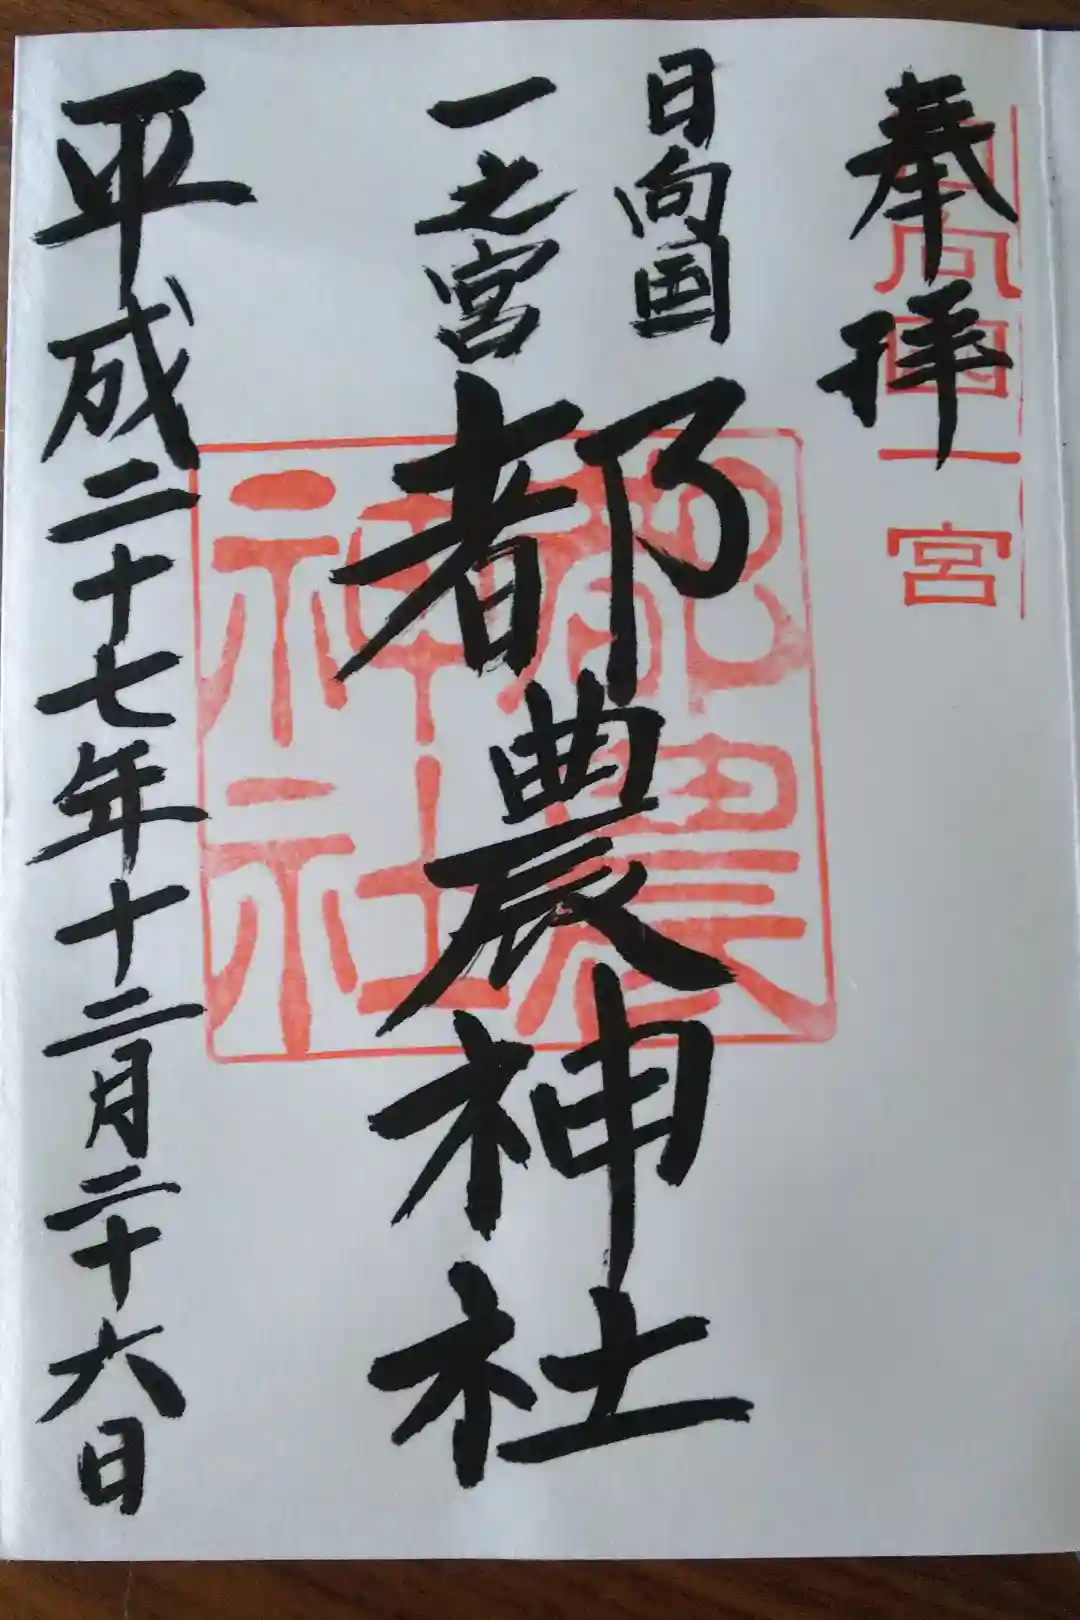 奉拝
日向国一宮
日向国
一之宮
都農神社
都農神社
平成二十七年十二月二十六日